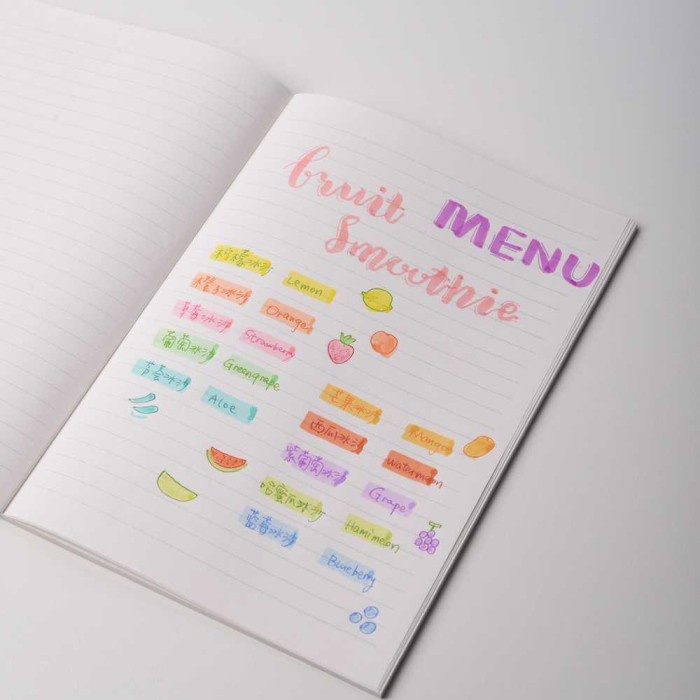 fruit MENU
Smoothie
柠檬冰沙 Lemon
橙子冰沙 Orange
草莓冰沙 Strawberry
葡萄冰沙 Greengrape
芦荟冰沙 Aloe
芒果冰沙 Mango
西瓜冰沙 Watermelon
紫葡萄冰沙 Grape
哈蜜瓜冰沙 Hamimelon
蓝莓冰沙 Blueberry